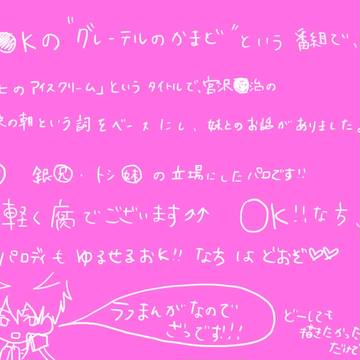 ㋾Kの"グレーテルのかまど"という番組で、
のアイスクリーム」というタイトルで、宮沢賢治の
の朝という詞をベースにし、妹とのお話がありました。
銀兄・トシ妹の立場にしたパロです!!
軽く腐でございます↑↑ OK!!なち
パロディもゆるせるおK!!なちはどおぞ♡♡
ララまんがなので
ざつです!!!
どーしても
描きたかった
だけで